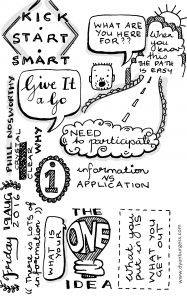 KICK
START
SMART
WHAT ARE
YOU HERE
FOR??
When you
know this
THE PATH
IS EASY
Give It
a Go
PHILL NOSWORTHY
YEAR
WHY
NEED to participate
1
information
VS
APPLICATION
Friday 19 AUG
2016
lots of
information
WHAT IS
YOUR
THE
ONE
IDEA
what you
put in is
WHAT YOU
GET OUT